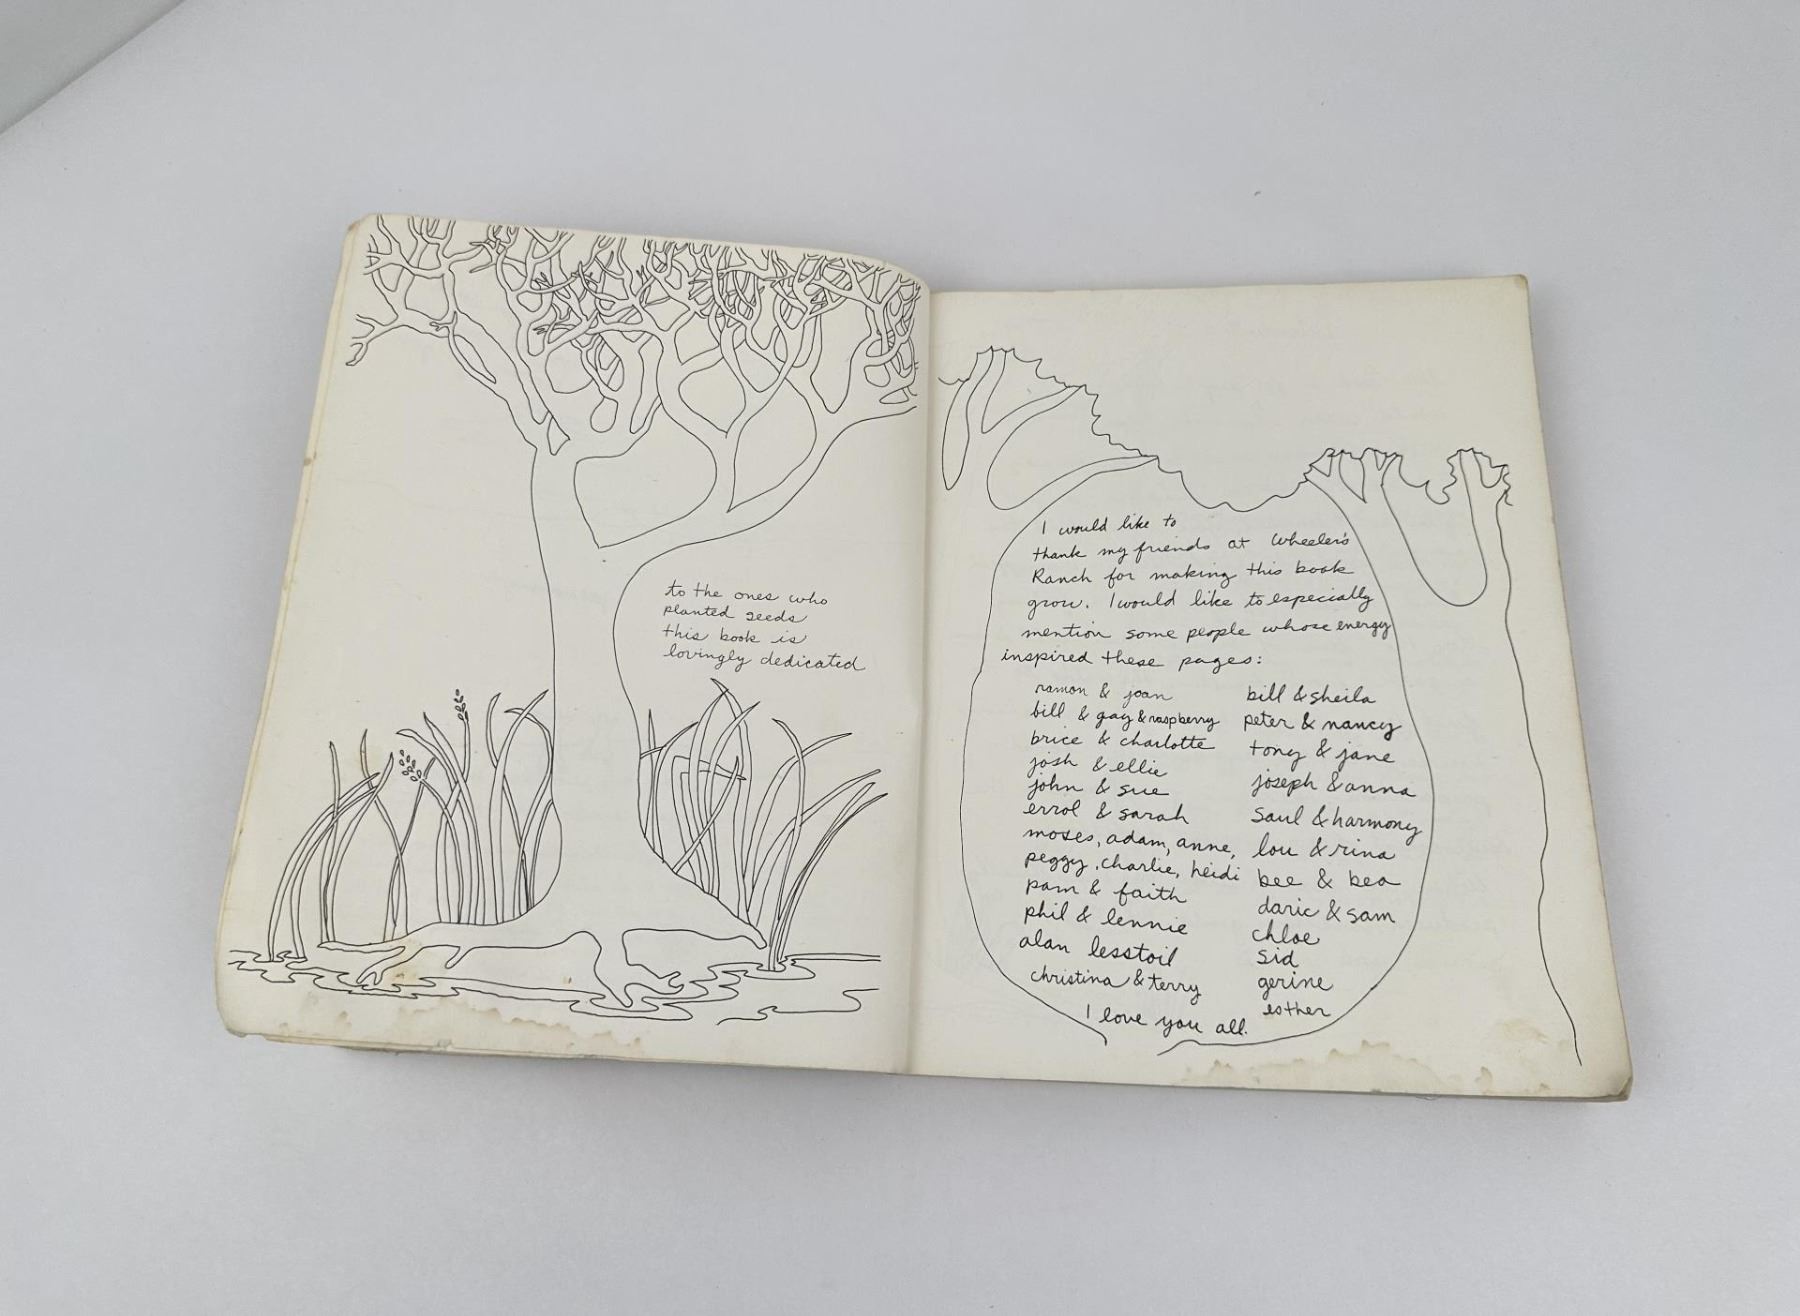 to the ones who
planted seeds
this book is
lovingly dedicated
I would like to
thank my friends at Wheeler's
Ranch for making this book
grow. I would like to especially
mention some people whose energy
inspired these pages:
ramon & joan
bill & gay & raspberry
brice & charlotte
josh & ellie
john & sue
errol & sarah
moses, adam, anne,
peggy, charlie, heidi
pam & faith
phil & lennie
alan lesstoil
christina & terry
bill & sheila
peter & nancy
tony & jane
joseph & anna
saul & harmony
lou & rina
bee & bea
daric & sam
chloe
sid
gerine
esther
I love you all.